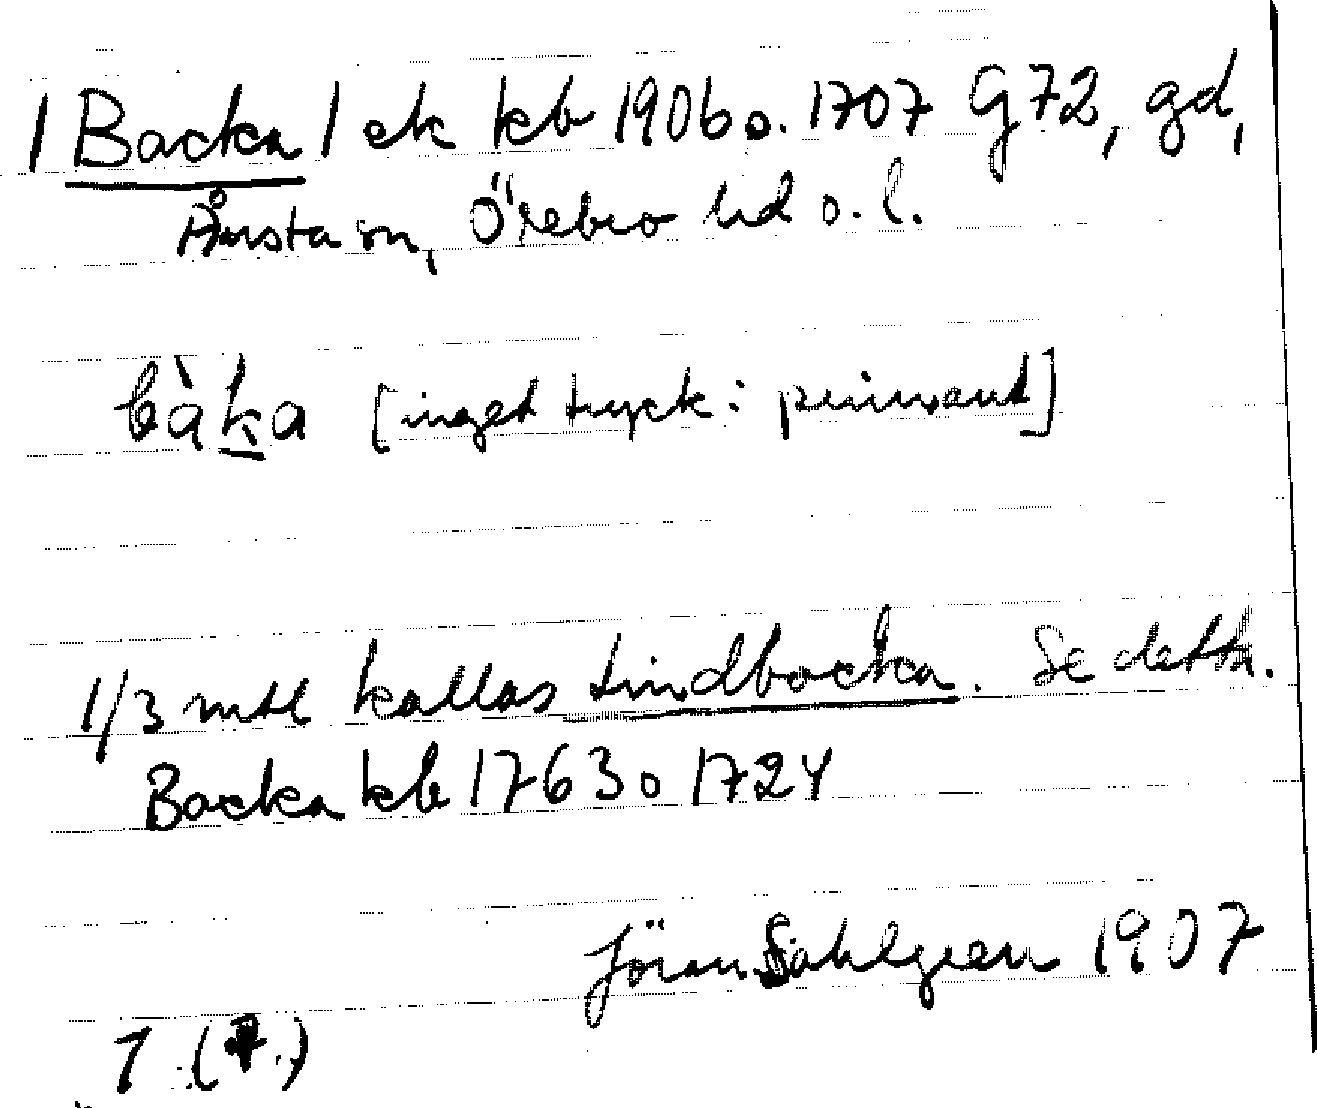 1 Backa 1 ek kb 1906 o. 1707 G72, gd,
Ånsta sn, Örebro hd o. l.
bàka [inget tryck: pennvant]
1/3 mtl kallas Lindbacka. Se detta.
Backa kb 1763 o 1724
Jöran Sahlgren 1907
1 (7.)